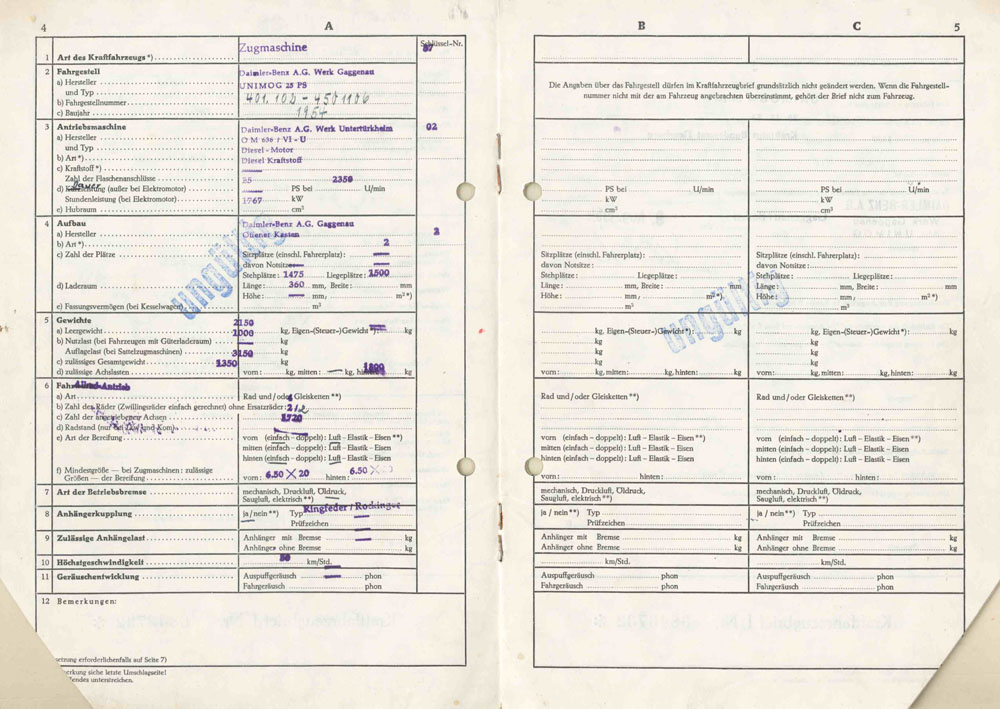 4
A
Schlüssel-Nr.
1 Art des Kraftfahrzeugs*) Zugmaschine
2 Fahrgestell
a) Hersteller Daimler-Benz A.G. Werk Gaggenau
und Typ UNIMOG 25 PS
b) Fahrgestellnummer 401.102-4501106
c) Baujahr 1954
3 Antriebsmaschine
a) Hersteller Daimler-Benz A.G. Werk Untertürkheim 02
und Typ O M 636 / VI - U
b) Art*) Diesel - Motor
c) Kraftstoff*) Diesel Kraftstoff
Zahl der Flaschenanschlüsse
d) (außer bei Elektromotor) 25 PS bei 2350 U/min
Stundenleistung (bei Elektromotor) kW
e) Hubraum 1767 cm³
4 Aufbau
a) Hersteller Daimler-Benz A.G. Gaggenau
b) Art*) Offener Kasten 2
c) Zahl der Plätze Sitzplätze (einschl. Fahrerplatz): 2
davon Notsitze
Stehplätze: Liegeplätze:
d) Laderaum Länge: 1475 mm, Breite: 1500 mm
Höhe: 360 mm, m² *)
e) Fassungsvermögen (bei Kesselwagen) m³
ungültig
5 Gewichte
a) Leergewicht 2150 kg, Eigen-(Steuer-)Gewicht*): kg
b) Nutzlast (bei Fahrzeugen mit Güterladeraum) 1000 kg
Auflagelast (bei Sattelzugmaschinen) kg
c) zulässiges Gesamtgewicht 3150 kg
d) zulässige Achslasten vorn: 1350 kg, mitten: kg, hinten: 1800 kg
6 Allrad-Antrieb
a) Art Rad und/oder Gleisketten **)
b) Zahl der Räder (Zwillingsräder einfach gerechnet) ohne Ersatzräder: 2/2
c) Zahl der angetriebenen Achsen
d) Radstand 1720
e) Art der Bereifung vorn (einfach – doppelt): Luft – Elastik – Eisen **)
mitten (einfach – doppelt): Luft – Elastik – Eisen
hinten (einfach – doppelt): Luft – Elastik – Eisen
f) Mindestgröße — bei Zugmaschinen: zulässige
Größen — der Bereifung vorn: 6.50 X 20 6.50 X
7 Art der Betriebsbremse mechanisch, Druckluft, Öldruck,
Saugluft, elektrisch **)
8 Anhängerkupplung ja / nein **) Typ Ringfeder / Rockinger
Prüfzeichen
9 Zulässige Anhängelast Anhänger mit Bremse kg
Anhänger ohne Bremse kg
10 Höchstgeschwindigkeit 50 km/Std.
11 Geräuschentwicklung Auspuffgeräusch phon
Fahrgeräusch phon
12 Bemerkungen:
setzung erforderlichenfalls auf Seite 7)
erkung siehe letzte Umschlagseite!
fendes unterstreichen.
B
C
5
Die Angaben über das Fahrgestell dürfen im Kraftfahrzeugbrief grundsätzlich nicht geändert werden. Wenn die Fahrgestell-
nummer nicht mit der am Fahrzeug angebrachten übereinstimmt, gehört der Brief nicht zum Fahrzeug.
PS bei U/min PS bei U/min
kW kW
cm³ cm³
Sitzplätze (einschl. Fahrerplatz): Sitzplätze (einschl. Fahrerplatz):
davon Notsitze: davon Notsitze:
Stehplätze: Liegeplätze: Stehplätze: Liegeplätze:
Länge: mm, Breite: mm Länge: mm, Breite: mm
Höhe: mm, m² *) Höhe: mm, m² *)
m³ m³
ungültig
kg, Eigen-(Steuer-)Gewicht*): kg kg, Eigen-(Steuer-)Gewicht*): kg
kg kg
kg kg
kg kg
vorn: kg, mitten: kg, hinten: kg vorn: kg, mitten: kg, hinten: kg
Rad und/oder Gleisketten **) Rad und/oder Gleisketten **)
vorn (einfach – doppelt): Luft – Elastik – Eisen **) vorn (einfach – doppelt): Luft – Elastik – Eisen **)
mitten (einfach – doppelt): Luft – Elastik – Eisen mitten (einfach – doppelt): Luft – Elastik – Eisen
hinten (einfach – doppelt): Luft – Elastik – Eisen hinten (einfach – doppelt): Luft – Elastik – Eisen
vorn: hinten: vorn: hinten:
mechanisch, Druckluft, Öldruck, mechanisch, Druckluft, Öldruck,
Saugluft, elektrisch **) Saugluft, elektrisch **)
ja / nein **) Typ ja / nein **) Typ
Prüfzeichen Prüfzeichen
Anhänger mit Bremse kg Anhänger mit Bremse kg
Anhänger ohne Bremse kg Anhänger ohne Bremse kg
km/Std. km/Std.
Auspuffgeräusch phon Auspuffgeräusch phon
Fahrgeräusch phon Fahrgeräusch phon